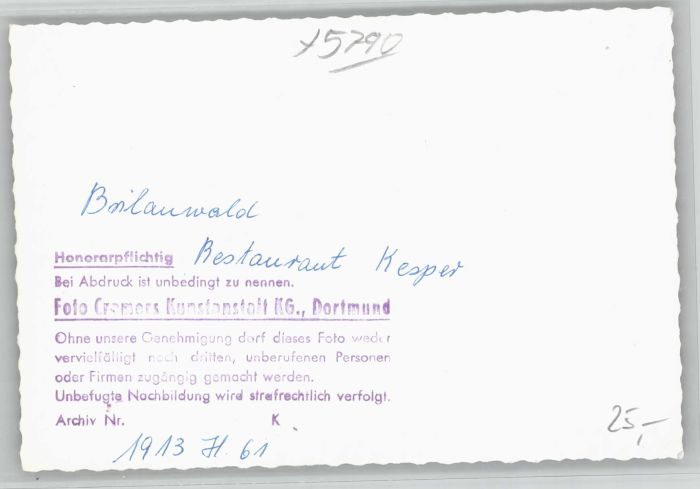 5790
Brilonwald
Honorarpflichtig Restaurant Kesper
Bei Abdruck ist unbedingt zu nennen.
Foto Cramers Kunstanstalt KG., Dortmund
Ohne unsere Genehmigung darf dieses Foto weder
vervielfältigt noch dritten, unberufenen Personen
oder Firmen zugängig gemacht werden.
Unbefugte Nachbildung wird strafrechtlich verfolgt.
Archiv Nr. K
1913 H. 61
25,-